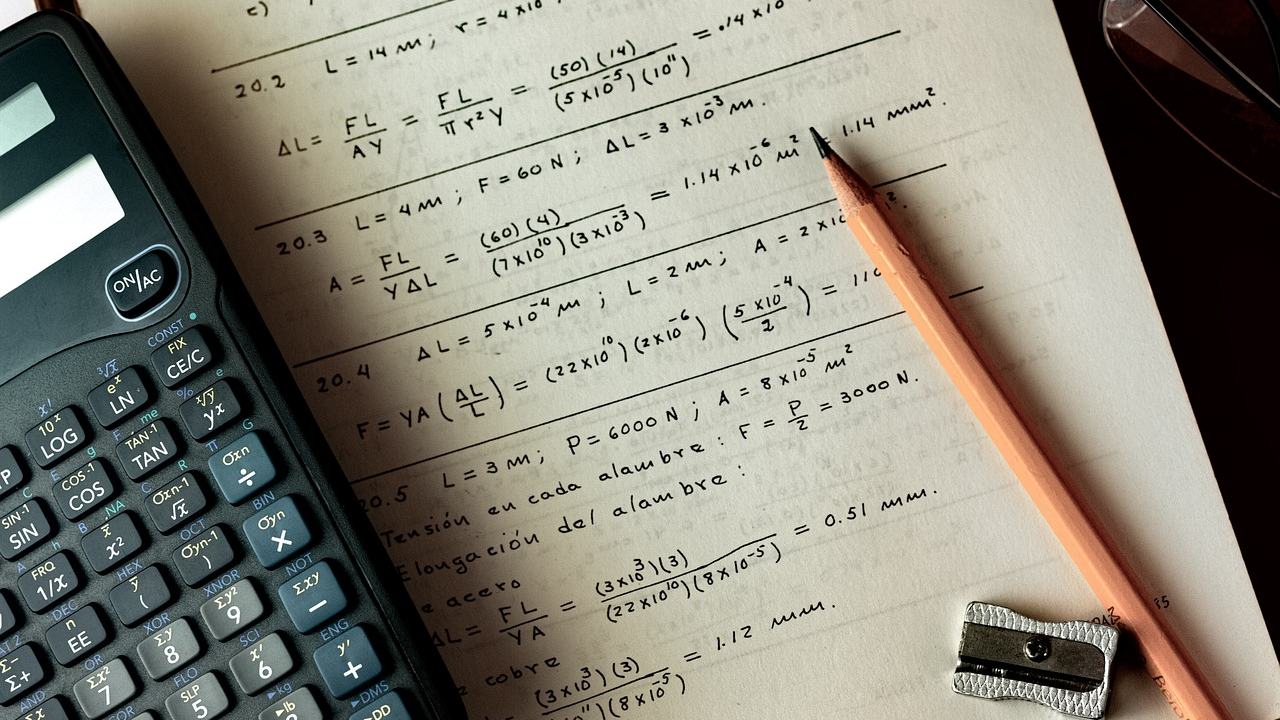 c)
20.2 L = 14 m; r = 4 x10
ΔL = FL/AY = FL/πr²Y = (50)(14)/(5x10⁻⁵)(10¹¹) = .14 x10
20.3 L = 4m; F = 60 N; ΔL = 3 x10⁻³ m.
A = FL/YΔL = (60)(4)/(7x10¹⁰)(3x10⁻³) = 1.14 x10⁻⁶ m² = 1.14 mm².
20.4 ΔL = 5 x10⁻⁴ m; L = 2 m; A = 2 x10
F = YA (ΔL/L) = (22x10¹⁰)(2x10⁻⁶) (5x10⁻⁴/2) = 110
20.5 L = 3 m; P = 6000 N; A = 8 x10⁻⁵ m²
Tensión en cada alambre: F = P/2 = 3000 N.
Elongación del alambre:
e acero
ΔL = FL/YA = (3x10³)(3)/(22x10¹⁰)(8x10⁻⁵) = 0.51 mm.
cobre
(3x10³)(3)/(8x10⁻⁵) = 1.12 mm.
ON/AC
CONST
FIX
CE/C
³√x
eˣ
LN
%
e
ˣ√y
yx
x!
10ˣ
LOG
F
me
TAN⁻¹
TAN
π
G
σxn
÷
P
E
g
COS⁻¹
COS
R
σxn-1
√x
BIN
σyn
×
C
SIN⁻¹
SIN
B
NA
x̄
x²
OCT
σyn-1
)
NOT
Σxy
−
A
h
FRQ
1/x
HEX
ȳ
(
XNOR
Σy²
9
ENG
y'
+
DEC
n
EE
XOR
Σy
8
SCI
x'
6
▸DMS
DD
Σ−
Σ+
OR
Σx²
7
FLO
SLP
5
▸kg
▸lb
AND